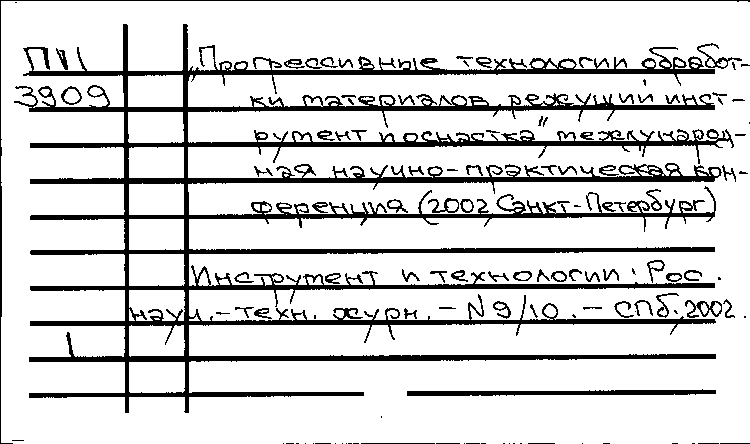 П11 „Прогрессивные технологии обработ-
3909 ки материалов, режущий инст-
румент и оснастка", международ-
ная научно-практическая кон-
ференция (2002, Санкт-Петербург)
Инструмент и технологии: Рос.
науч.-техн. журн. - N 9/10. - СПб, 2002.
1